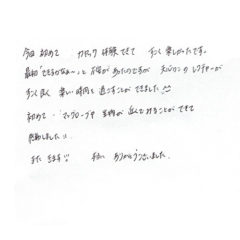 今回 初めて カヤック 体験できて すごく楽しかったです。
最初「できるかなぁ〜」と 不安があったのですが のレクチャーが
すごく良く 楽しい時間を過ごすことができました^^
初めて マングローブや 生物が 近くでみることができて
感動しました!!
また きます!! ありがとうございました。